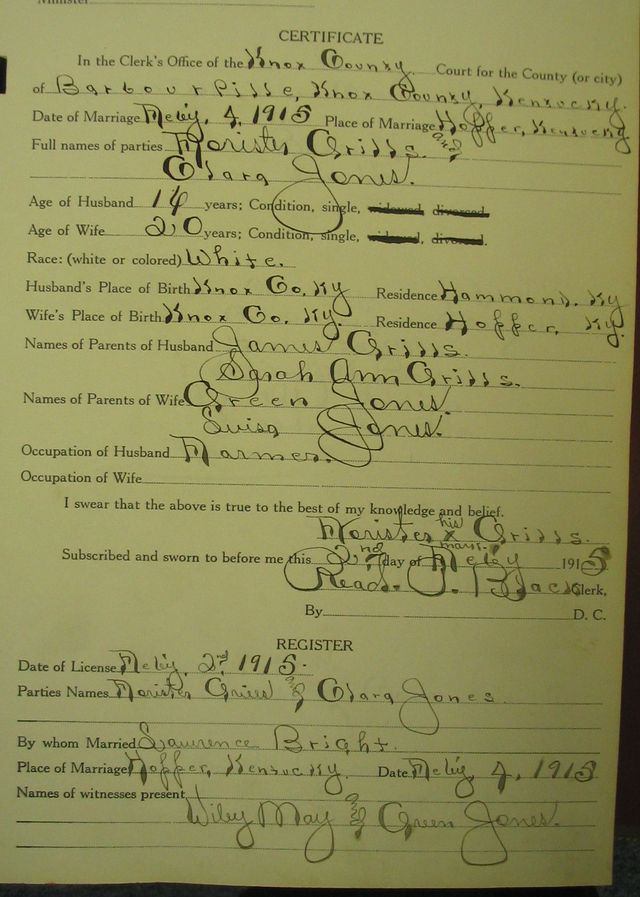 Minister
CERTIFICATE
In the Clerk's Office of the Knox County Court for the County (or city)
of Barbourville, Knox County, Kentucky.
Date of Marriage Feby, 4, 1915 Place of Marriage Hopper, Kentucky
Full names of parties Forister Grills and
Clara Jones.
Age of Husband years; Condition, single, widowed, divorced.
Age of Wife 20 years; Condition, single, widowed, divorced.
Race: (white or colored) White.
Husband's Place of Birth Knox Co, Ky Residence Hammond, Ky
Wife's Place of Birth Knox Co, Ky. Residence Hopper, Ky.
Names of Parents of Husband James Grills.
Sarah Ann Grills.
Names of Parents of Wife Green Jones.
Luisa Jones.
Occupation of Husband Farmer.
Occupation of Wife
I swear that the above is true to the best of my knowledge and belief.
Forister his x mark Grills.
Subscribed and sworn to before me this 2nd day of Feby 1915
Read. P. Black Clerk,
By D. C.
REGISTER
Date of License Feby, 2nd 1915.
Parties Names Forister Grills & Clara Jones.
By whom Married Lawrence Bright.
Place of Marriage Hopper, Kentucky. Date Feby, 4, 1915
Names of witnesses present
Wiley May and Green Jones.